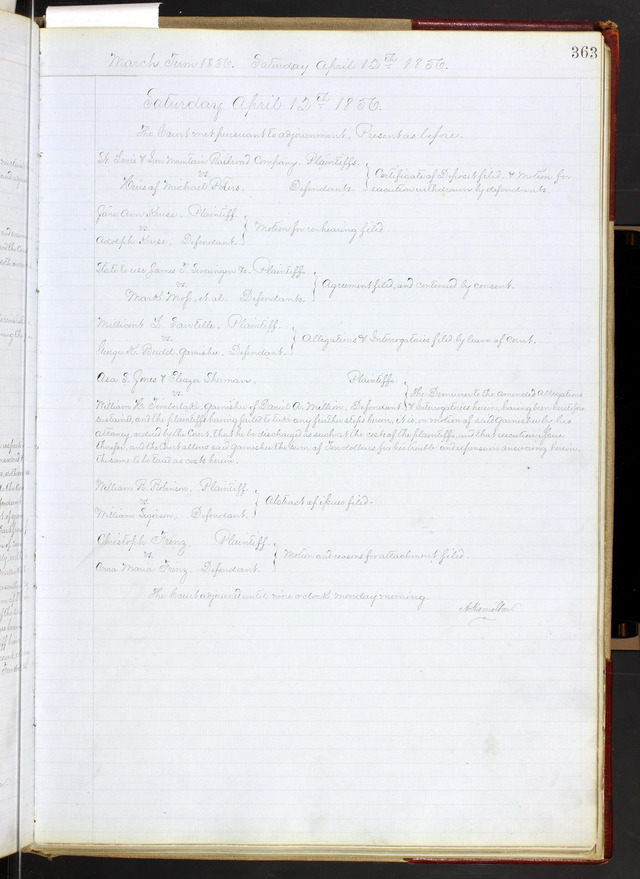 363
March Term 1856. Saturday April 12th 1856.
Saturday April 12th 1856.
The Court met pursuant to adjournment, Present as before.
St. Louis & Iron Mountain Railroad Company, Plaintiffs.
vs.
Heirs of Michael Peters. Defendants.
Certificate of Deposit filed, & Motion for
execution withdrawn by defendants.
Jane Ann Kruse. Plaintiff
vs.
Adolph Kruse, Defendant.
Motion for re-hearing filed.
State to use James T. Swearingen &c. Plaintiffs.
vs.
Mark Moss, et al. Defendants.
Agreement filed, and continued by consent.
Millicent L. Sawtelle, Plaintiff.
vs.
George K. Budd Garnishee, Defendant.
Allegations & Interrogatories filed by leave of Court.
Asa S. Jones & Sherman, Plaintiffs
vs.
William H. Timberlake, Garnishee of Daniel A. Million, Defendant.
The Demurrer to the amended Allegations
& Interrogatories herein, having been heretofore
sustained, and the plaintiffs having failed to take any further steps herein, It is, on motion of said Garnishee by his
attorney, ordered by the Court, that he be discharged as such at the cost of the plaintiffs, and that execution issue
therefor, and the Court allows said garnishee the sum of Ten dollars for his trouble and expenses in answering herein,
the same to be taxed as costs herein.
William R. Robinson, Plaintiff
vs.
William, Defendant.
Abstract of issues filed.
Christoph Frenz, Plaintiff.
vs.
Anna Maria Frenz. Defendant.
Motion and reasons for attachment filed.
The Court adjourned until nine o'clock Monday morning.
A. Hamilton